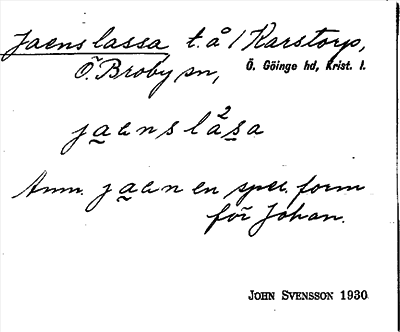 Jaens lassa t. å / Karstorp,
Ö. Broby sn, Ö. Göinge hd, Krist. l.
jaens låsa
2
Anm. jaen en spec. form
för Johan.
JOHN SVENSSON 1930